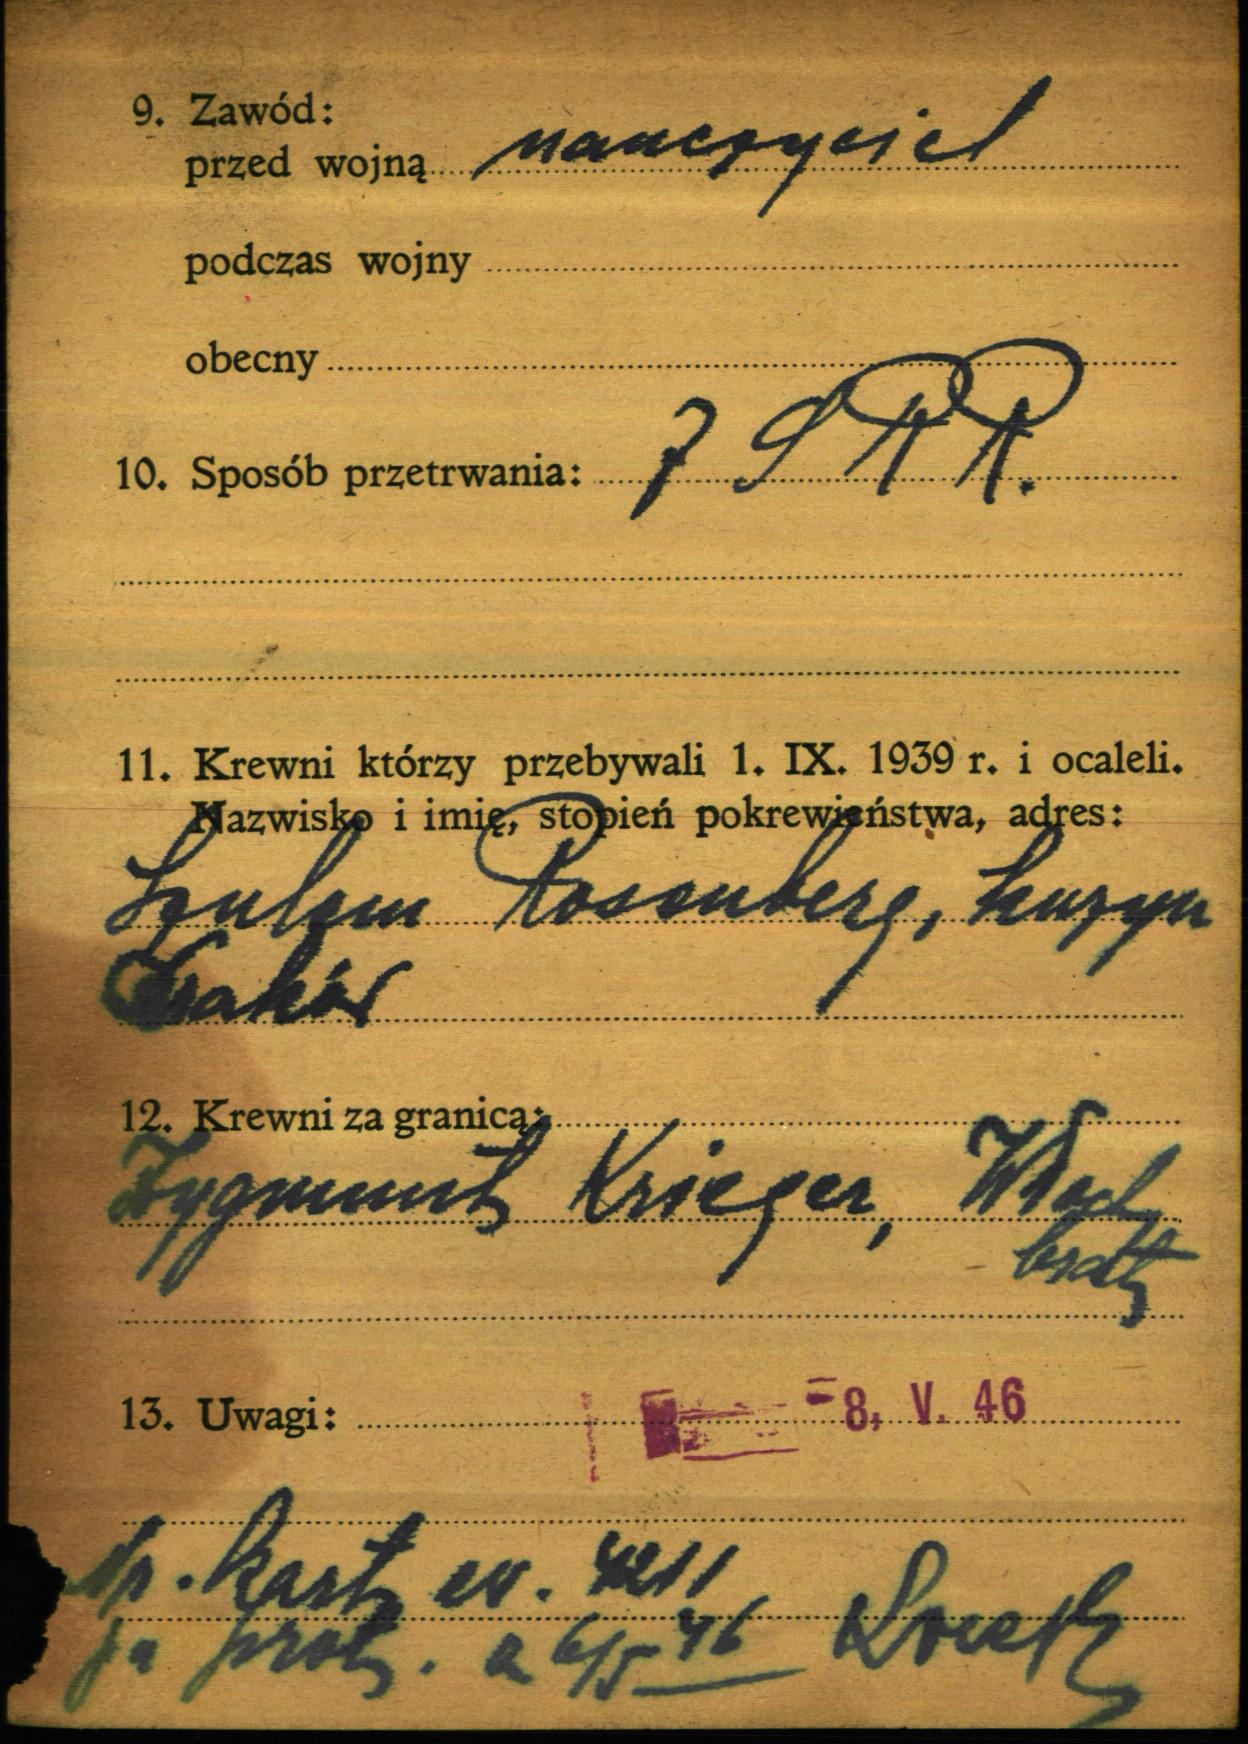 9. Zawód:
przed wojną nauczyciel
podczas wojny
obecny
10. Sposób przetrwania: Z S R R.
11. Krewni którzy przebywali 1. IX. 1939 r. i ocaleli.
Nazwisko i imię, stopień pokrewieństwa, adres:
Szulem Rosenberg, kuzyn
Kraków
12. Krewni za granicą:
Zygmunt Krieger, Włochy
brat
13. Uwagi:
-8. V. 46
kart. ew. 4211
prot. 6/5 46